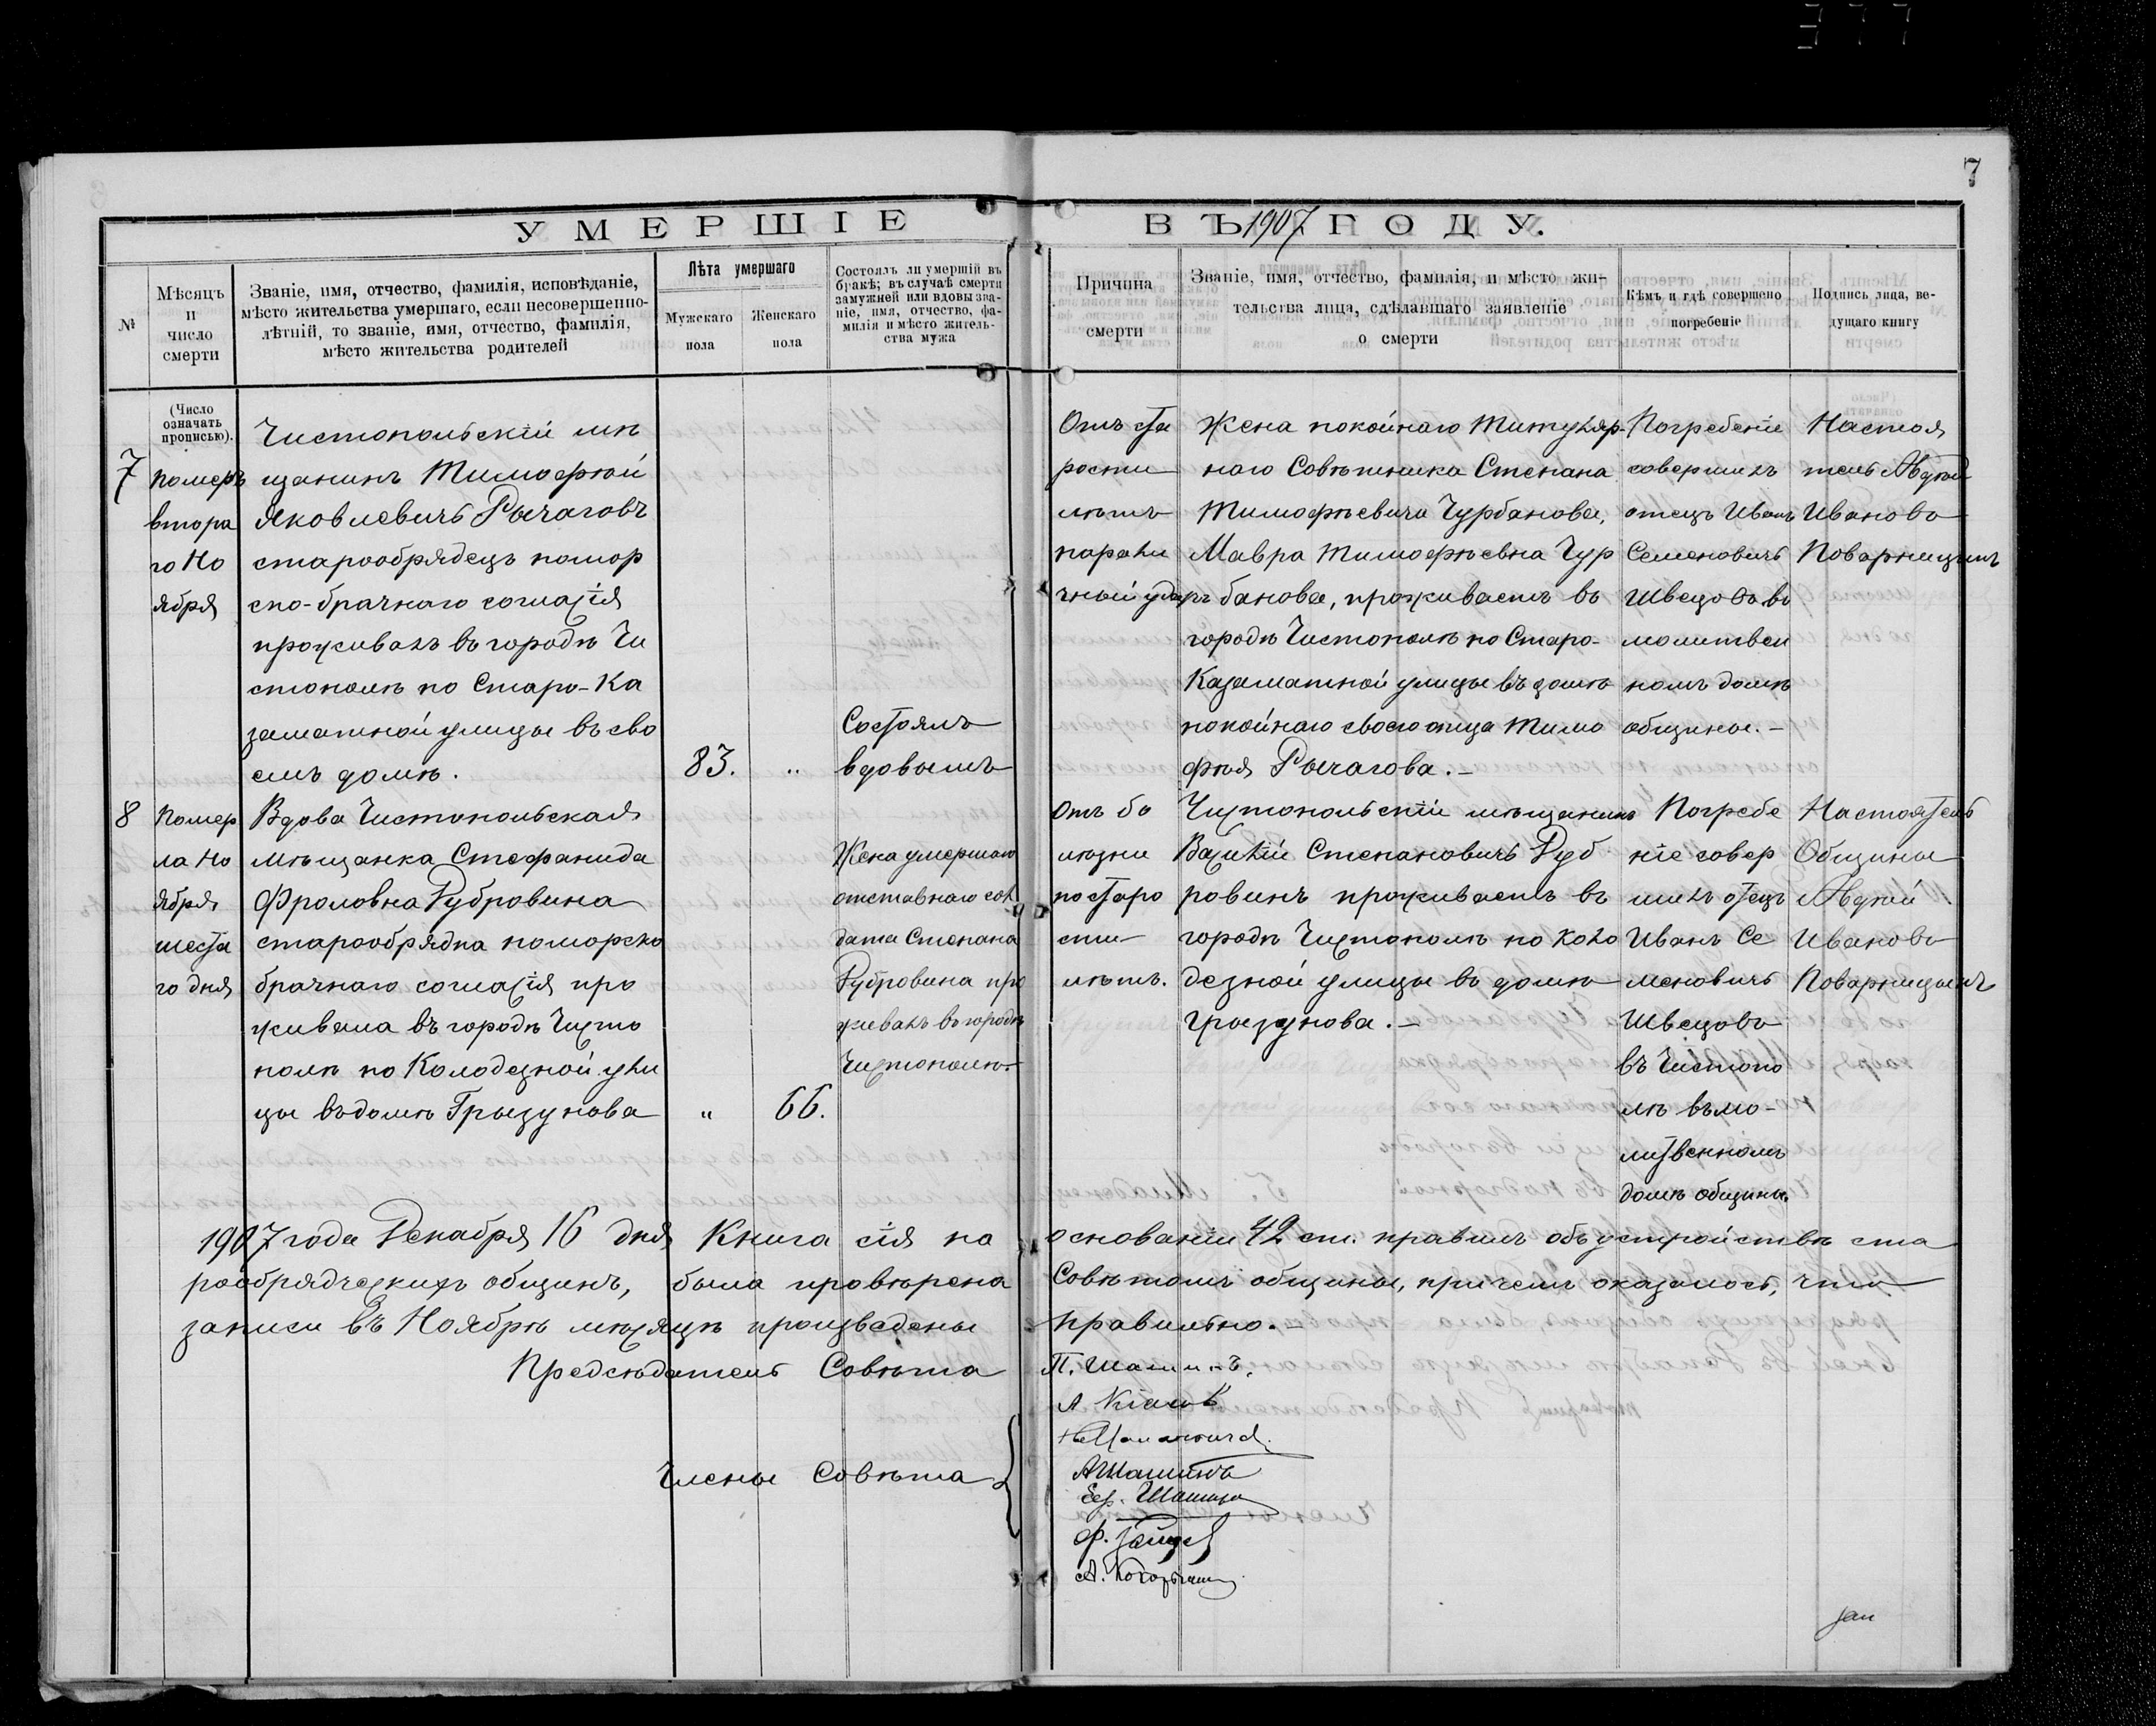 7
УМЕРШІЕ ВЪ 1907 ГОДУ.
№
Мѣсяцъ
и
число
смерти
Званіе, имя, отчество, фамилія, исповѣданіе,
мѣсто жительства умершаго, если несовершенно-
лѣтній, то званіе, имя, отчество, фамилія,
мѣсто жительства родителей
Лѣта умершаго
Мужскаго
пола
Женскаго
пола
Состоялъ ли умершій въ
бракѣ; въ случаѣ смерти
замужней или вдовы зва-
ніе, имя, отчество, фа-
милія и мѣсто житель-
ства мужа
Причина
смерти
Званіе, имя, отчество, фамилія, и мѣсто жи-
тельства лица, сдѣлавшаго заявленіе
о смерти
Кѣмъ и гдѣ совершено
погребеніе
Подпись лица, ве-
дущаго книгу
(Число
означать
прописью).
7
померъ
втора
го Но
ября
Чистопольскій мѣ
щанинъ Тимофѣй
Яковлевичъ Рычаговъ
старообрядецъ помор
ско-брачнаго согласія
проживалъ въ городѣ Чи
стополѣ по Старо-Ка
заматной улицы въ сво
емъ домѣ.
83.
"
Состоялъ
вдовымъ
Отъ ста
рости
лѣтъ
парали
чный ударъ
Жена покойнаго Титуляр-
наго Совѣтника Степана
Тимофѣевича Чурбанова,
Мавра Тимофѣевна Чур
банова, проживаетъ въ
городѣ Чистополѣ по Старо-
Казаматной улицы въ домѣ
покойнаго своего отца Тимо
фѣя Рычагова.-
Погребеніе
совершилъ
отецъ Иванъ
Семеновичъ
Швецовъ въ
молитвен
номъ домѣ
общины.-
Настоя
тель Авдѣй
Ивановъ
Поварницынъ
8
Помер
ла Но
ября
шеста
го дня
Вдова Чистопольская
мѣщанка Стефанида
Фроловна Дубровина
старообрядка поморско
брачнаго согласія про
живала въ городѣ Чисто
полѣ по Колодезной ули
цы въ домѣ Грызунова
"
66.
Жена умершаго
отставнаго сол
дата Степана
Дубровина про
живалъ въ городѣ
Чистополѣ
Отъ бо
лѣзни
по старо
сти
лѣтъ.
Чистопольскій мѣщанинъ
Василій Степановичъ Дуб
ровинъ проживаетъ въ
городѣ Чистополѣ по Коло
дезной улицы въ домѣ
Грызунова.-
Погребе
ніе совер
шилъ отецъ
Иванъ Се
меновичъ
Швецовъ
въ Чистопо
лѣ въ мо-
литвенномъ
домѣ общины.
Настоятель
Общины
Авдѣй
Ивановъ
Поварницынъ
1907 года Декабря 16 дня Книга сія на основаніи 42 ст. правилъ объ устройствѣ ста
рообрядческихъ общинъ, была провѣрена Совѣтомъ общины, причемъ оказалось, что
записи въ Ноябрѣ мѣсяцѣ произведены правильно.-
Предсѣдатель Совѣта П. Шашинъ.
Члены Совѣта
АШашинъ